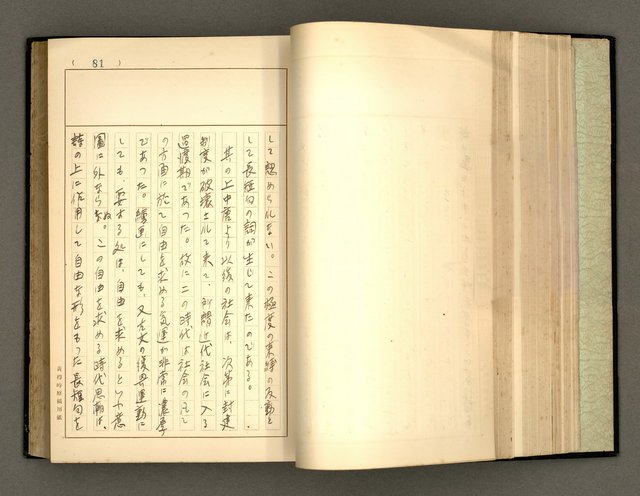 ( 81 )
して認められない。この極度の束縛の反動と
して長短句の詞が生じて来たのである。
其の上中唐より以後の社会は、次第に封建
制度が破壊されて来て、所謂近代社会に入る
過渡期であった。故にこの時代は社会の凡て
の方面に於て自由を求める気運が非常に濃厚
であった。繪画にしても、又古文の復興運動に
しても、要する処は、自由を求めるといふ意
圖に外ならぬ。この自由を求める時代思潮は、
詩の上に作用して自由な形をもった長短句を
黃得時原稿用紙